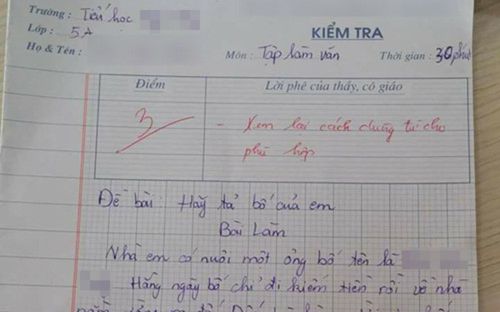 Trường : Tiểu học
Lớp : 5A
Họ & Tên :
KIỂM TRA
Môn : Tập làm văn Thời gian : 30 phút
Điểm Lời phê của thầy, cô giáo
3
- Xem lại cách dùng từ cho
phù hợp
Đề bài : Hãy tả bố của em
Bài Làm
Nhà em có nuôi một ông bố tên là
Hằng ngày bố chỉ đi kiếm tiền rồi về nhà